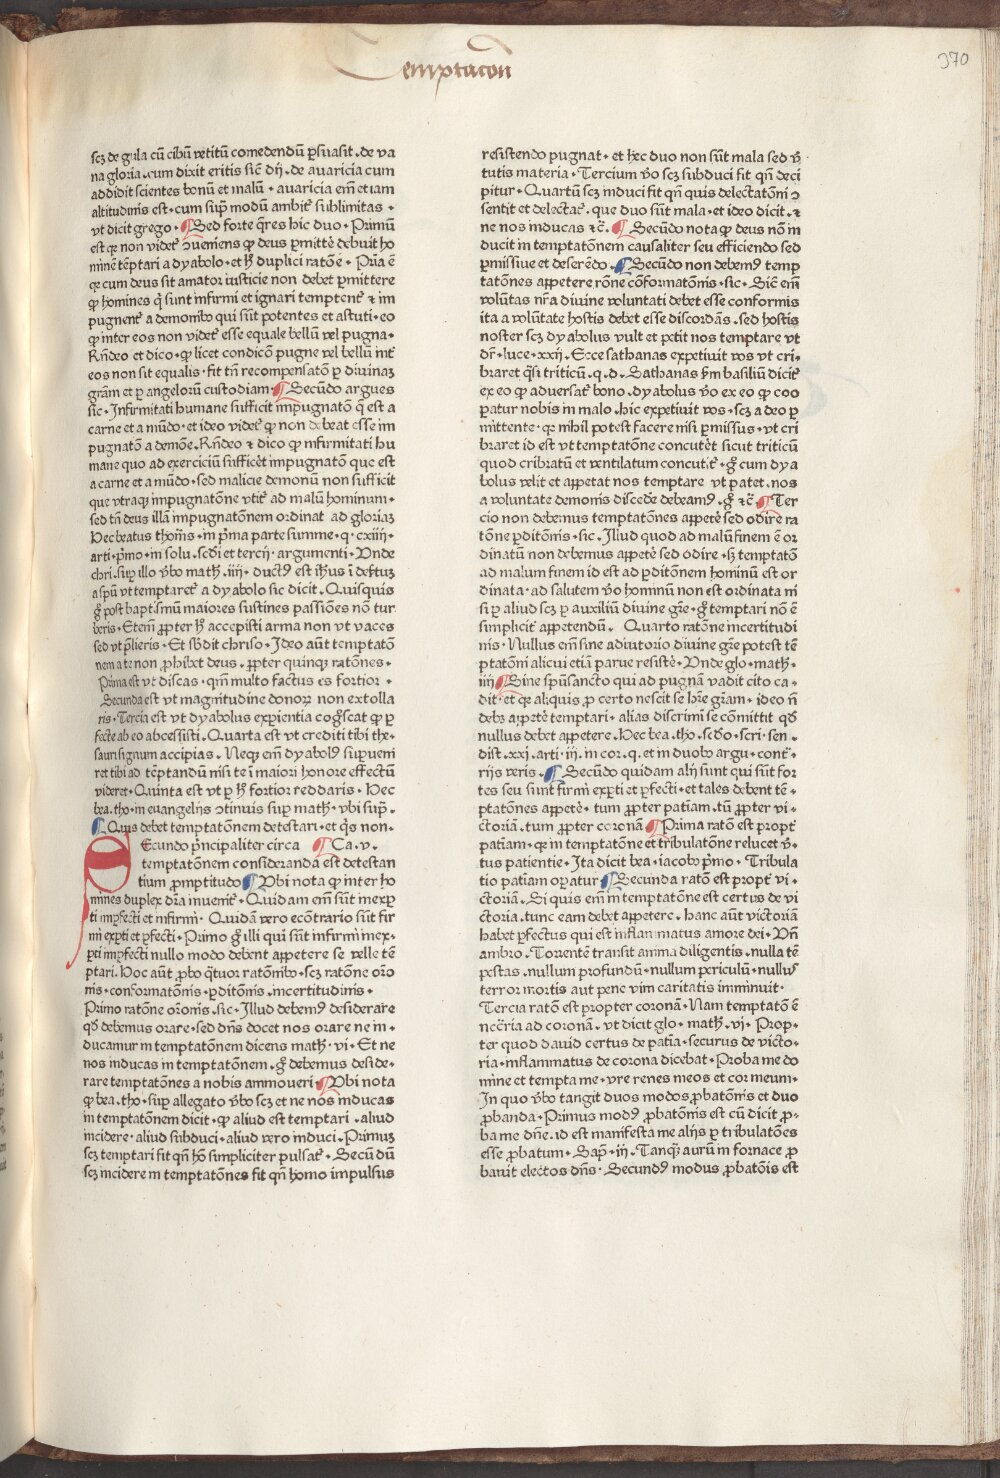 Temptacōn
370
scꝫ de gula cū cibū vetitū comedendū ꝑsuasit. de va
na gloria. cum dixit eritis sic̄ dij. de avaricia cum
addidit scientes bonū et malū · avaricia em̄ etiam
altitudinis est · cum suꝑ modū ambit̉ sublimitas ·
vt dicit grego · Sed forte q̄res hic duo · Primū
est qꝛ non videt̉ ↄueniens ꝙ deus ꝑmitte̓ debuit ho
minē tēptari a dyabolo · et hͦ duplici ratōne · Pria ē
qꝛ cum deus sit amator iusticie non debet ꝑmittere
ꝙ homines q̄ sunt infirmi et ignari temptent̉ ⁊ im
pugnent̉ a demonibꝰ qui sūt potentes et astuti · eo
ꝙ inter eos non videt̉ esse equale bellū vel pugna ·
Rn̄deo et dico · ꝙ licet condicōn pugne vel bellū int̉
eos non sit equalis · fit tn̄ recompensatōn ꝑ divinaꝫ
grām et ꝑ angelorū custodiam · Secūdo argues
sic · Infirmitati humane sufficit impugnatōn q̄ est a
carne et a mūdo · et ideo videt̉ ꝙ non debeat esse im
pugnatōn a demōne. Rn̄deo ⁊ dico ꝙ infirmitati hu
mane quo ad exerciciū sufficēt impugnatōn que est
a carne et a mūdo · sed malicie demonū non sufficit
que vtraqꝫ impugnatōne vtit̉ ad malū hominum ·
sed tn̄ deus illā impugnatōnem ordinat ad gloriaꝫ
Hec beatus thomas · in p̄ma parte summe · q · cxiiij ·
arti · p̄mo · in solu · scd̄i et tercij · argumenti · Vnde
chri. suꝑ illo v̄bo math. iiij · ductꝰ est ih̄us ī desertuꝫ
a spū vt temptaret̉ a dyabolo sic dicit. Quisquis
g̊ post baptismū maiores sustines passiōnes nō tur
beris · Etem̄ ꝓpter hͦ accepisti arma non vt vaces
sed vt p̄lieris · Et sb̄dit chriso · Ideo aūt temptatōn
nem a te non ꝓhibet deus · ꝓpter quinqꝫ ratōnes ·
Prima est vt discas · qm̄ multo factus es fortior ·
Secunda est vt magnitudine donoꝝ non extolla
ris · Tercia est vt dyabolus exꝑientia cogn̄oscat ꝙ ꝑ
fecte ab eo abcessisti. Quarta est vt crediti tibi the-
sauri signum accipias. Neqꝫ em̄ dyabolꝰ suꝑveni
ret tibi ad tēptandū nisi te ī maiori honore effectū
videret · Quinta est vt ꝑ hͦ fortior reddaris · Hec
bea. tho · in euangelijs ↄtinuis suꝑ math · vbi supͣ.
Quis debet temptatōnem detestari · et q̄s non ·
Secundo p̄ncipaliter circa Ca. v.
temptatōnem consideranda est detestan
tium ꝓmptitudo Vbi nota ꝙ inter ho
mines duplex dr̄a invenit̉ · Quidam em̄ sūt inexꝑ
ti imꝑfecti et infirmi · Quidā vero ecōtrario sūt fir
mi exꝑti et ꝑfecti · Primo g̊ illi qui sūnt infirmi inex-
ꝑti imꝑfecti nullo modo debent appetere se velle tē
ptari. Hoc aūt ꝓbo q̄tuor ratōnibꝰ · scꝫ ratōne orōo
nis · conformatōnis · ꝑditōnis · incertitudinis ·
Primo ratōne orōonis · sic · Illud debemꝰ desiderare
qd̄ debemus orare · sed dn̄s docet nos orare ne in ·
ducamur in temptatōnem dicens math · vi · Et ne
nos inducas in temptatōnem · g̊ debemus deside-
rare temptatōnes a nobis ammoueri · Vbi nota
ꝙ bea. tho · suꝑ allegato v̄bo scꝫ et ne nos inducas
in temptatōnem dicit · ꝙ aliud est temptari · aliud
incidere · aliud subduci · aliud vero induci. Primuꝫ
scꝫ temptari fit qn̄ hō simpliciter pulsat̉ · Secūdū
scꝫ incidere in temptatōnes fit qn̄ homo impulsus
resistendo pugnat · et hec duo non sūt mala sed v̄
tutis materia · Tercium v̄o scꝫ subduci fit qn̄ deci
pitur · Quartū scꝫ induci fit qn̄ quis delectatōni ↄ
sentit et delectat̉ · que duo sūt mala · et ideo dicit · ⁊
ne nos inducas ⁊c̄. Secūdo nota ꝙ deus nō in
ducit in temptatōnem causaliter seu efficiendo sed
ꝑmissiue et deserēdo. Secūdo non debemꝰ temp
tatōnes appetere rōne cōformatōnis · sic · Sic̄ em̄
volūtas nr̄a diuine voluntati debet esse conformis
ita a volūtate hostis debet esse discordās · sed hostis
noster scꝫ dyabolus vult et petit nos temptare vt
dr̄ · luce · xxij. Ecce sathanas expetiuit vos vt cri-
braret q̄si triticū. q. d. Sathanas s̄m basiliū dicit̉
ex eo ꝙ adversat̉ bono · dyabolus v̄o ex eo ꝙ coo
ꝑatur nobis in malo. hic expetiuit vos · scꝫ a deo ꝑ
mittente · qꝛ nihil potest facere nisi ꝑmissus · vt cri
braret id est vt temptatōne concutēt sicut triticū
quod cribratū et ventilatum concutit̉ · g̊ cum dya
bolus velit et appetat nos temptare vt patet · nos
a voluntate demonis discede̓ debeamꝰ. g̊ ⁊c̄. Ter
cio non debemus temptatōnes appete̓ sed odire ra
tōne ꝑditōnis · sic · Illud quod ad malū finem ē or
dinatū non debemus appete̓ sed odire · sꝫ temptatōn
ad malum finem id est ad ꝑditōnem hominū est or
dinata · ad salutem v̄o hominū non est ordinata ni
si ꝑ aliud scꝫ ꝑ auxiliū diuine gr̄e · g̊ temptari nō ē
simplicit̉ appetendū. Quarto ratōne incertitudi
nis · Nullus em̄ sine adiutorio diuine gr̄e potest tē
ptatōni alicui etiā parue resiste̓ · Vnde glo · math ·
iiij Sine spūsancto qui ad pugnā vadit cito ca-
dit · et qꝛ aliquis ꝓ certo nescit se hr̄e gr̄am · ideo n̄
debꝫ appete̓ temptari · alias discrimi se cōmittit qd̄
nullus debet appetere. Hec bea. tho. scd̄o · scri · sen ·
dist. xxi. arti · iij. in cor. q. et in duobꝰ argu · cont̉ ·
rijs veris · Secūdo quidam alij sunt qui sūt for
tes seu sunt firmi exꝑti et ꝑfecti · et tales debent tē-
ptatōnes appete̓ · tum ꝓpter patīam · tū ꝓpter vi-
ctoriā · tum ꝓpter coronā Prima ratōn est propt̉
patiam · qꝛ in temptatōne et tribulatōne relucet v̄-
tus patientie · Ita dicit bea · iacobꝰ p̄mo · Tribula
tio patīam oꝑatur Secunda ratōn est propt̉ vi-
ctoriā. Si quis em̄ in temptatōne est certus de vi
ctoria · tunc eam debet appetere · hanc aūt victoriā
habet ꝑfectus qui est inflammatus amore dei · Vn̄
ambro · Torentē transit anima diligentis · nulla tē
pestas · nullum profundū · nullum periculū · nullus
terror mortis aut pene vim caritatis imminuit ·
Tercia ratōn est propter coronā · Nam temptatōn ē
ncc̄ria ad coronā. vt dicit glo · math · vi · Prop-
ter quod david certus de patīa · securus de victo-
ria · inflammatus de corona dicebat · Proba me do
mine et tempta me · vre renes meos et cor meum ·
In quo v̄bo tangit duos modos ꝓbatōnis et duo
ꝓbanda · Primus modꝰ ꝓbatōnis est cū dicit ꝓ-
ba me dn̄e. id est manifesta me alijs ꝑ tribulatōes
esse ꝓbatum · Sap̄ · iij · Tanqꝫ aurū in fornace ꝓ
bauit electos dn̄s · Secundꝰ modus ꝓbatōnis est